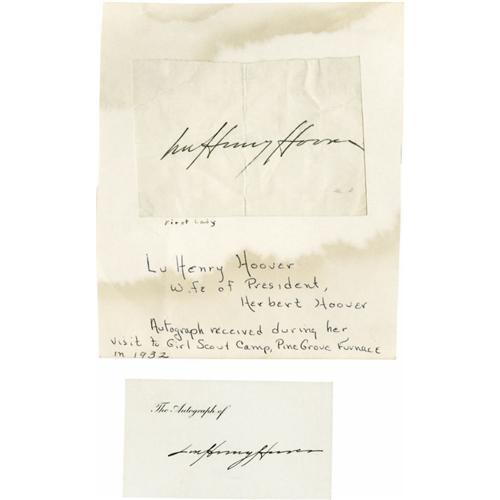 Lou Henry Hoover
First Lady
Lu Henry Hoover
Wife of President,
Herbert Hoover
Autograph received during her
visit to Girl Scout Camp, Pine Grove Furnace
in 1932
The Autograph of
Lou Henry Hoover